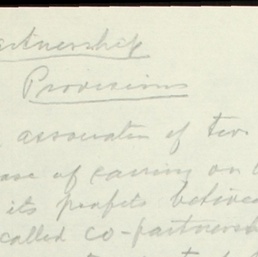 artnership
Provisions
association of two
ose of carrying on
its profits betwee
called co-partnersh